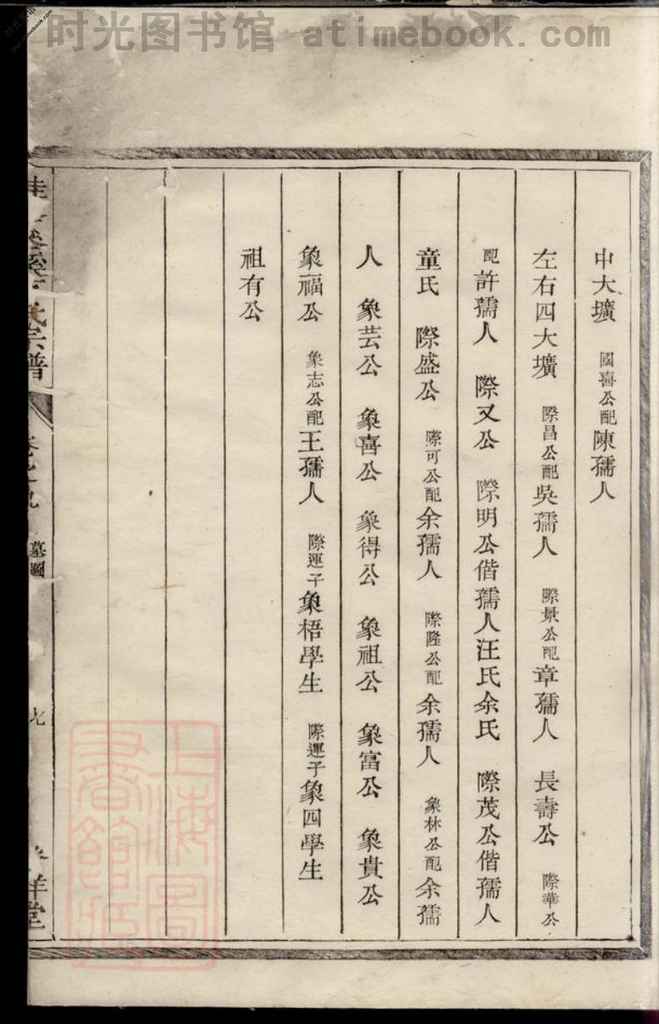 时光图书馆 atimebook.com
中大壙 國喜公配陳孺人
左右四大壙 際昌公配吳孺人 際景公配章孺人 長壽公 際華公
配許孺人 際又公 際明公偕孺人汪氏余氏 際茂公偕孺人
童氏 際盛公 際可公配余孺人 際隆公配余孺人 象林公配余孺
人 象芸公 象喜公 象得公 象祖公 象富公 象貴公
象福公 象志公配王孺人 際運子象梧學生 際運子象四學生
祖有公
氏宗譜 墓圖 九 祥堂
上海圖書館藏